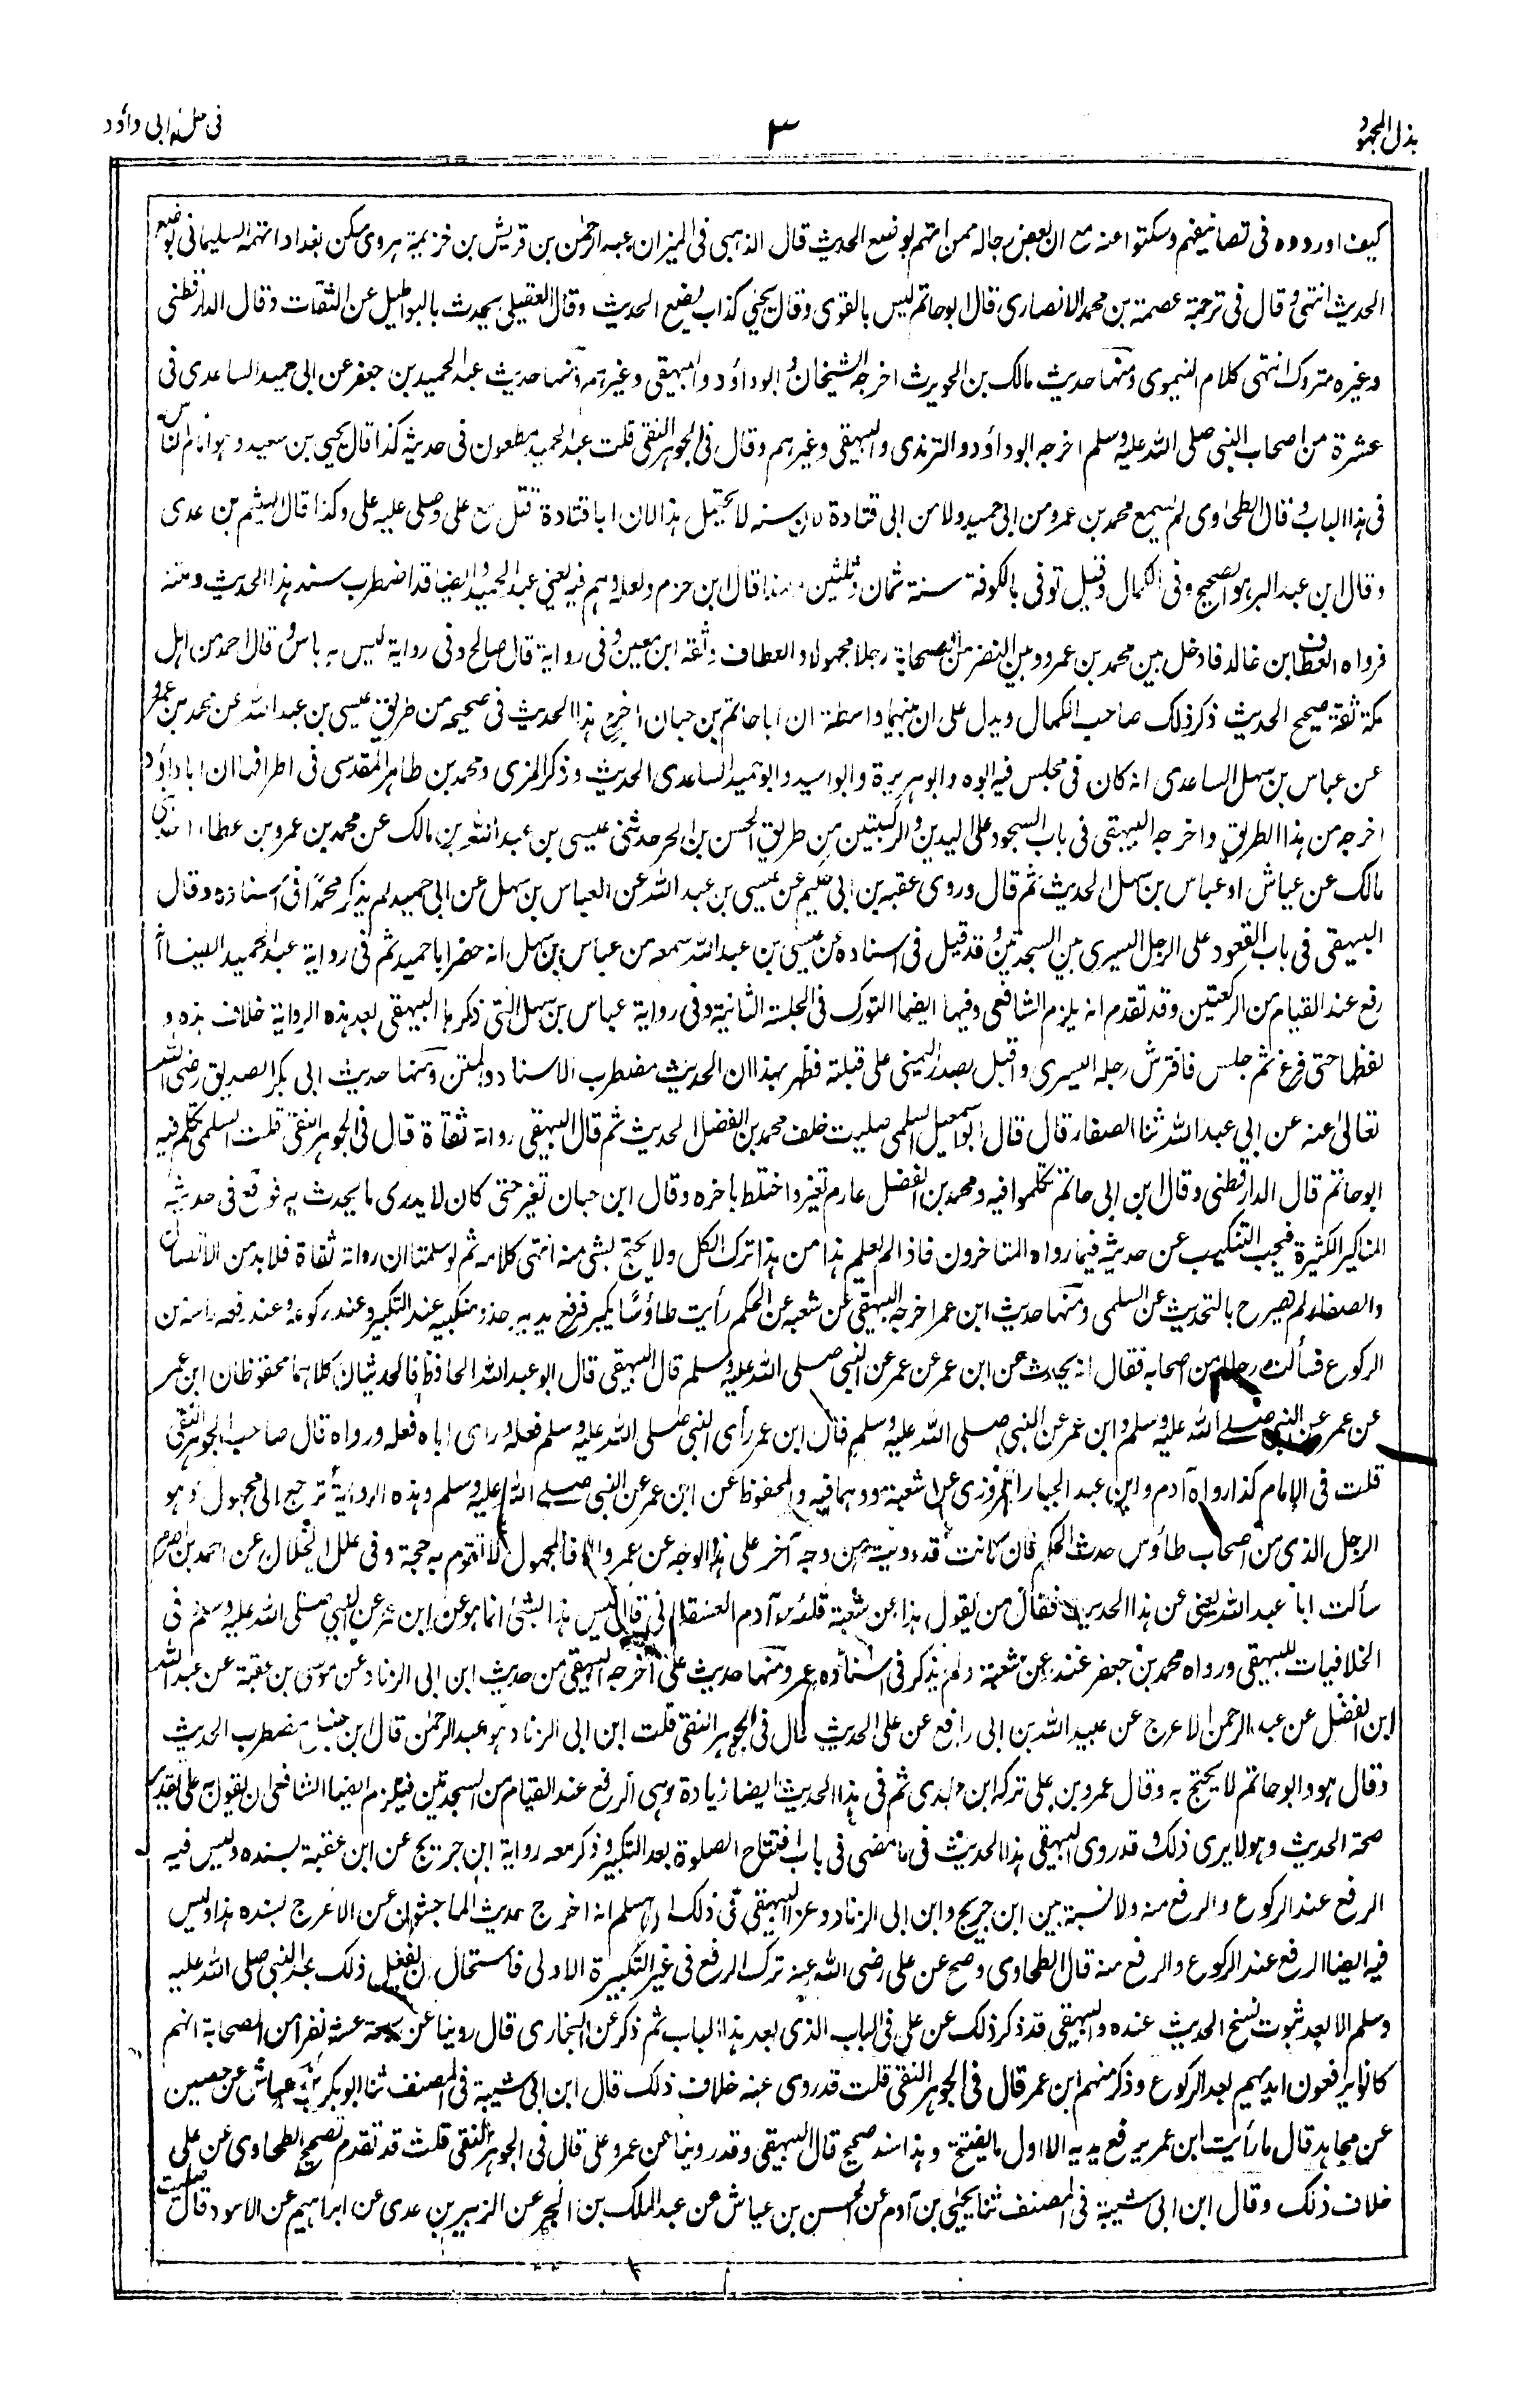 بذل المجهود
٣
فى حل ابى داؤد
كيف اوردوه فى تصانيفهم وسكتوا عنه مع ان بعض رجاله ممن اتهم بوضع الحديث قال الذهبى فى الميزان عبد الرحمٰن بن قريش بن خزيمة هروى سكن بغداد اتهمه السليمانى بوضع
الحديث انتهى وقال فى ترجمة عصمة بن محمد الانصارى قال ابوحاتم ليس بالقوى وقال يحيى كذاب يضع الحديث وقال العقيلى يحدث بالبواطيل عن الثقات وقال الدارقطنى
وغيره متروك انتهى كلام النيموى ومنها حديث مالك بن الحويرث اخرجه الشيخان وابوداؤد والبيهقى وغيرهم ومنها حديث عبد الحميد بن جعفر عن ابى حميد الساعدى فى
عشرة من اصحاب النبى صلى الله عليه وسلم اخرجه ابوداؤد والترمذى والبيهقى وغيرهم وقال فى الجوهر النقى قلت عبد الحميد مطعون فى حديثه كذا قال يحيى بن سعيد وهو امام الناس
فى هذا الباب وقال الطحاوى لم يسمع محمد بن عمرو من ابى حميد ولا من ابى قتادة لان سنه لا يحتمل هذا لان ابا قتادة قتل مع على وصلى عليه على وكذا قال الهيثم بن عدى
وقال ابن عبد البر هو الصحيح وفى الكمال وقيل توفى بالكوفة سنة ثمان وثلثين قال ابن حزم ولعله وهم فيه يعنى عبد الحميد وايضا قد اضطرب سند هذا الحديث ومتنه
فرواه العطاف ابن خالد فادخل بين محمد بن عمرو وبين النضر من الصحابة رجلا مجهولا والعطاف وثقه ابن معين وفى رواية قال صالح وفى رواية ليس به باس وقال احمد من اهل
مكة ثقة صحيح الحديث ذكر ذلك صاحب الكمال ويدل على ان بينهما واسطة ان ابا حاتم بن حبان اخرج هذا الحديث فى صحيحه من طريق عيسى بن عبد الله عن محمد بن عمرو
عن عباس بن سهل الساعدى انه كان فى مجلس فيه ابوه وابو هريرة وابو اسيد وابو حميد الساعدى الحديث وذكر المزى ومحمد بن طاهر المقدسى فى اطرافهما ان ابا داؤد
اخرجه من هذا الطريق واخرجه البيهقى فى باب السجود على اليدين والركبتين من طريق الحسن بن الحر حدثنى عيسى بن عبد الله بن مالك عن محمد بن عمرو بن عطاء احد بنى
مالك عن عياش او عباس بن سهل الحديث ثم قال وروى عقبه بن ابى حكيم عن عيسى بن عبد الله عن العباس بن سهل عن ابى حميد لم يذكر محمدًا فى اسناده وقال
البيهقى فى باب القعود على الرجل اليسرى بين السجدتين وقد قيل فى اسناده عن عيسى بن عبد الله سمعه من عباس بن سهل انه حضر ابا حميد ثم فى رواية عبد الحميد ايضا انه
رفع عند القيام من الركعتين وقد تقدم انه يلزم الشافعى وفيها ايضا التورك فى الجلسة الثانية وفى رواية عباس بن سهل التى ذكرها البيهقى بعد هذه الرواية خلاف هذه و
لفظها حتى فرغ ثم جلس فافترش رجله اليسرى واقبل بصدر اليمنى على قبلته فظهر بهذا ان الحديث مضطرب الاسناد والمتن ومنها حديث ابى بكر الصديق رضى الله
تعالى عنه عن ابى عبد الله ثنا الصفار قال قال ابو اسمعيل السلمى صليت خلف محمد بن الفضل الحديث ثم قال البيهقى رواته ثقاة قال فى الجوهر النقى قلت السلمى تكلم فيه
ابوحاتم قال الدارقطنى وقال ابن ابى حاتم تكلموا فيه ومحمد بن الفضل عارم تغير واختلط باخره وقال ابن حبان تغير حتى كان لا يدرى ما يحدث به فوقع فى حديثه
المناكير الكثيرة فيجب التنكيب عن حديثه فيما رواه المتاخرون فاذا لم يعلم هذا من هذا ترك الكل ولا يحتج بشى منه انتهى كلامه ثم لو سلمنا ان رواته ثقاة فلا بد من الاتصال
والصفار لم يصرح بالتحديث عن السلمى ومنها حديث ابن عمر اخرجه البيهقى عن شعبه عن الحكم رأيت طاؤسًا يكبر فرفع يديه حذو منكبيه عند التكبير وعند ركوعه وعند رفعه راسه من
الركوع فسألت رجلا من اصحابه فقال انه يحدث عن ابن عمر عن عمر عن النبى صلى الله عليه وسلم قال البيهقى قال ابو عبد الله الحافظ فالحديثان كلاهما محفوظان ابن عمر
عن عمر عن النبى صلى الله عليه وسلم وابن عمر عن النبى صلى الله عليه وسلم فان ابن عمر رأى النبى صلى الله عليه وسلم فعله ورأى اباه فعله ورواه قال صاحب الجوهر النقى
قلت فى الإمام كذا رواه آدم وابن عبد الجبار المروزى عن شعبة ووهما فيه والمحفوظ عن ابن عمر عن النبى صلى الله عليه وسلم وهذه الرواية ترجع الى مجهول وهو
الرجل الذى من اصحاب طاؤس حدث الحكم فان كانت قد رويت من وجه آخر على هذا الوجه عن عمر والا فالمجهول لا تقوم به حجة وفى علل الخلال عن احمد بن اصرم
سألت ابا عبد الله يعنى عن هذا الحديث فقال من يقول هذا عن شعبة قلت آدم العسقلانى قال ليس هذا بشئ انما هو عن ابن عمر عن النبى صلى الله عليه وسلم فى
الخلافيات للبيهقى ورواه محمد بن جعفر غندر عن شعبة ولم يذكر فى اسناده عمر ومنها حديث على اخرجه البيهقى من حديث ابن ابى الزناد عن موسى بن عقبة عن عبد الله
ابن الفضل عن عبد الرحمن الاعرج عن عبيد الله بن ابى رافع عن على الحديث قال فى الجوهر النقى قلت ابن ابى الزناد هو عبد الرحمٰن قال ابن حنبل مضطرب الحديث
وقال هو وابوحاتم لا يحتج به وقال عمرو بن على تركه ابن مهدى ثم فى هذا الحديث ايضا زيادة وهى الرفع عند القيام من السجدتين فيلزم ايضا الشافعى ان يقول به على تقدير
صحة الحديث وهو لا يرى ذلك وقد روى البيهقى هذا الحديث فى ما مضى فى باب افتتاح الصلوة بعد التكبير وذكر معه رواية ابن جريج عن ابن عقبة بسنده وليس فيه
الرفع عند الركوع والرفع منه ولا نسبة بين ابن جريج وابن ابى الزناد وعزا البيهقى فى ذلك الى مسلم انه اخرج حديث الماجشون عن الاعرج بسنده هذا وليس
فيه ايضا الرفع عند الركوع والرفع منه قال الطحاوى وصح عن على رضى الله عنه ترك الرفع فى غير التكبيرة الاولى فاستحال ان يفعل ذلك بعد النبى صلى الله عليه
وسلم الا بعد ثبوت نسخ الحديث عنده والبيهقى قد ذكر ذلك عن على فى الباب الذى بعد هذا الباب ثم ذكر عن البخارى قال روينا عن سبعة عشر نفرا من الصحابة انهم
كانوا يرفعون ايديهم بعد الركوع وذكر منهم ابن عمر قال فى الجوهر النقى قلت قد روى عنه خلاف ذلك قال ابن ابى شيبة فى المصنف ثنا ابو بكر بن عياش عن حصين
عن مجاهد قال ما رأيت ابن عمر يرفع يديه الا اول ما يفتتح وهذا سند صحيح قال البيهقى وقد روينا عن عمر وعلى قال فى الجوهر النقى قلت قد تقدم تصحيح الطحاوى عن على
خلاف ذلك وقال ابن ابى شيبة فى المصنف ثنا يحيى بن آدم عن الحسن بن عياش عن عبد الملك بن ابجر عن الزبير بن عدى عن ابراهيم عن الاسود قال صليت